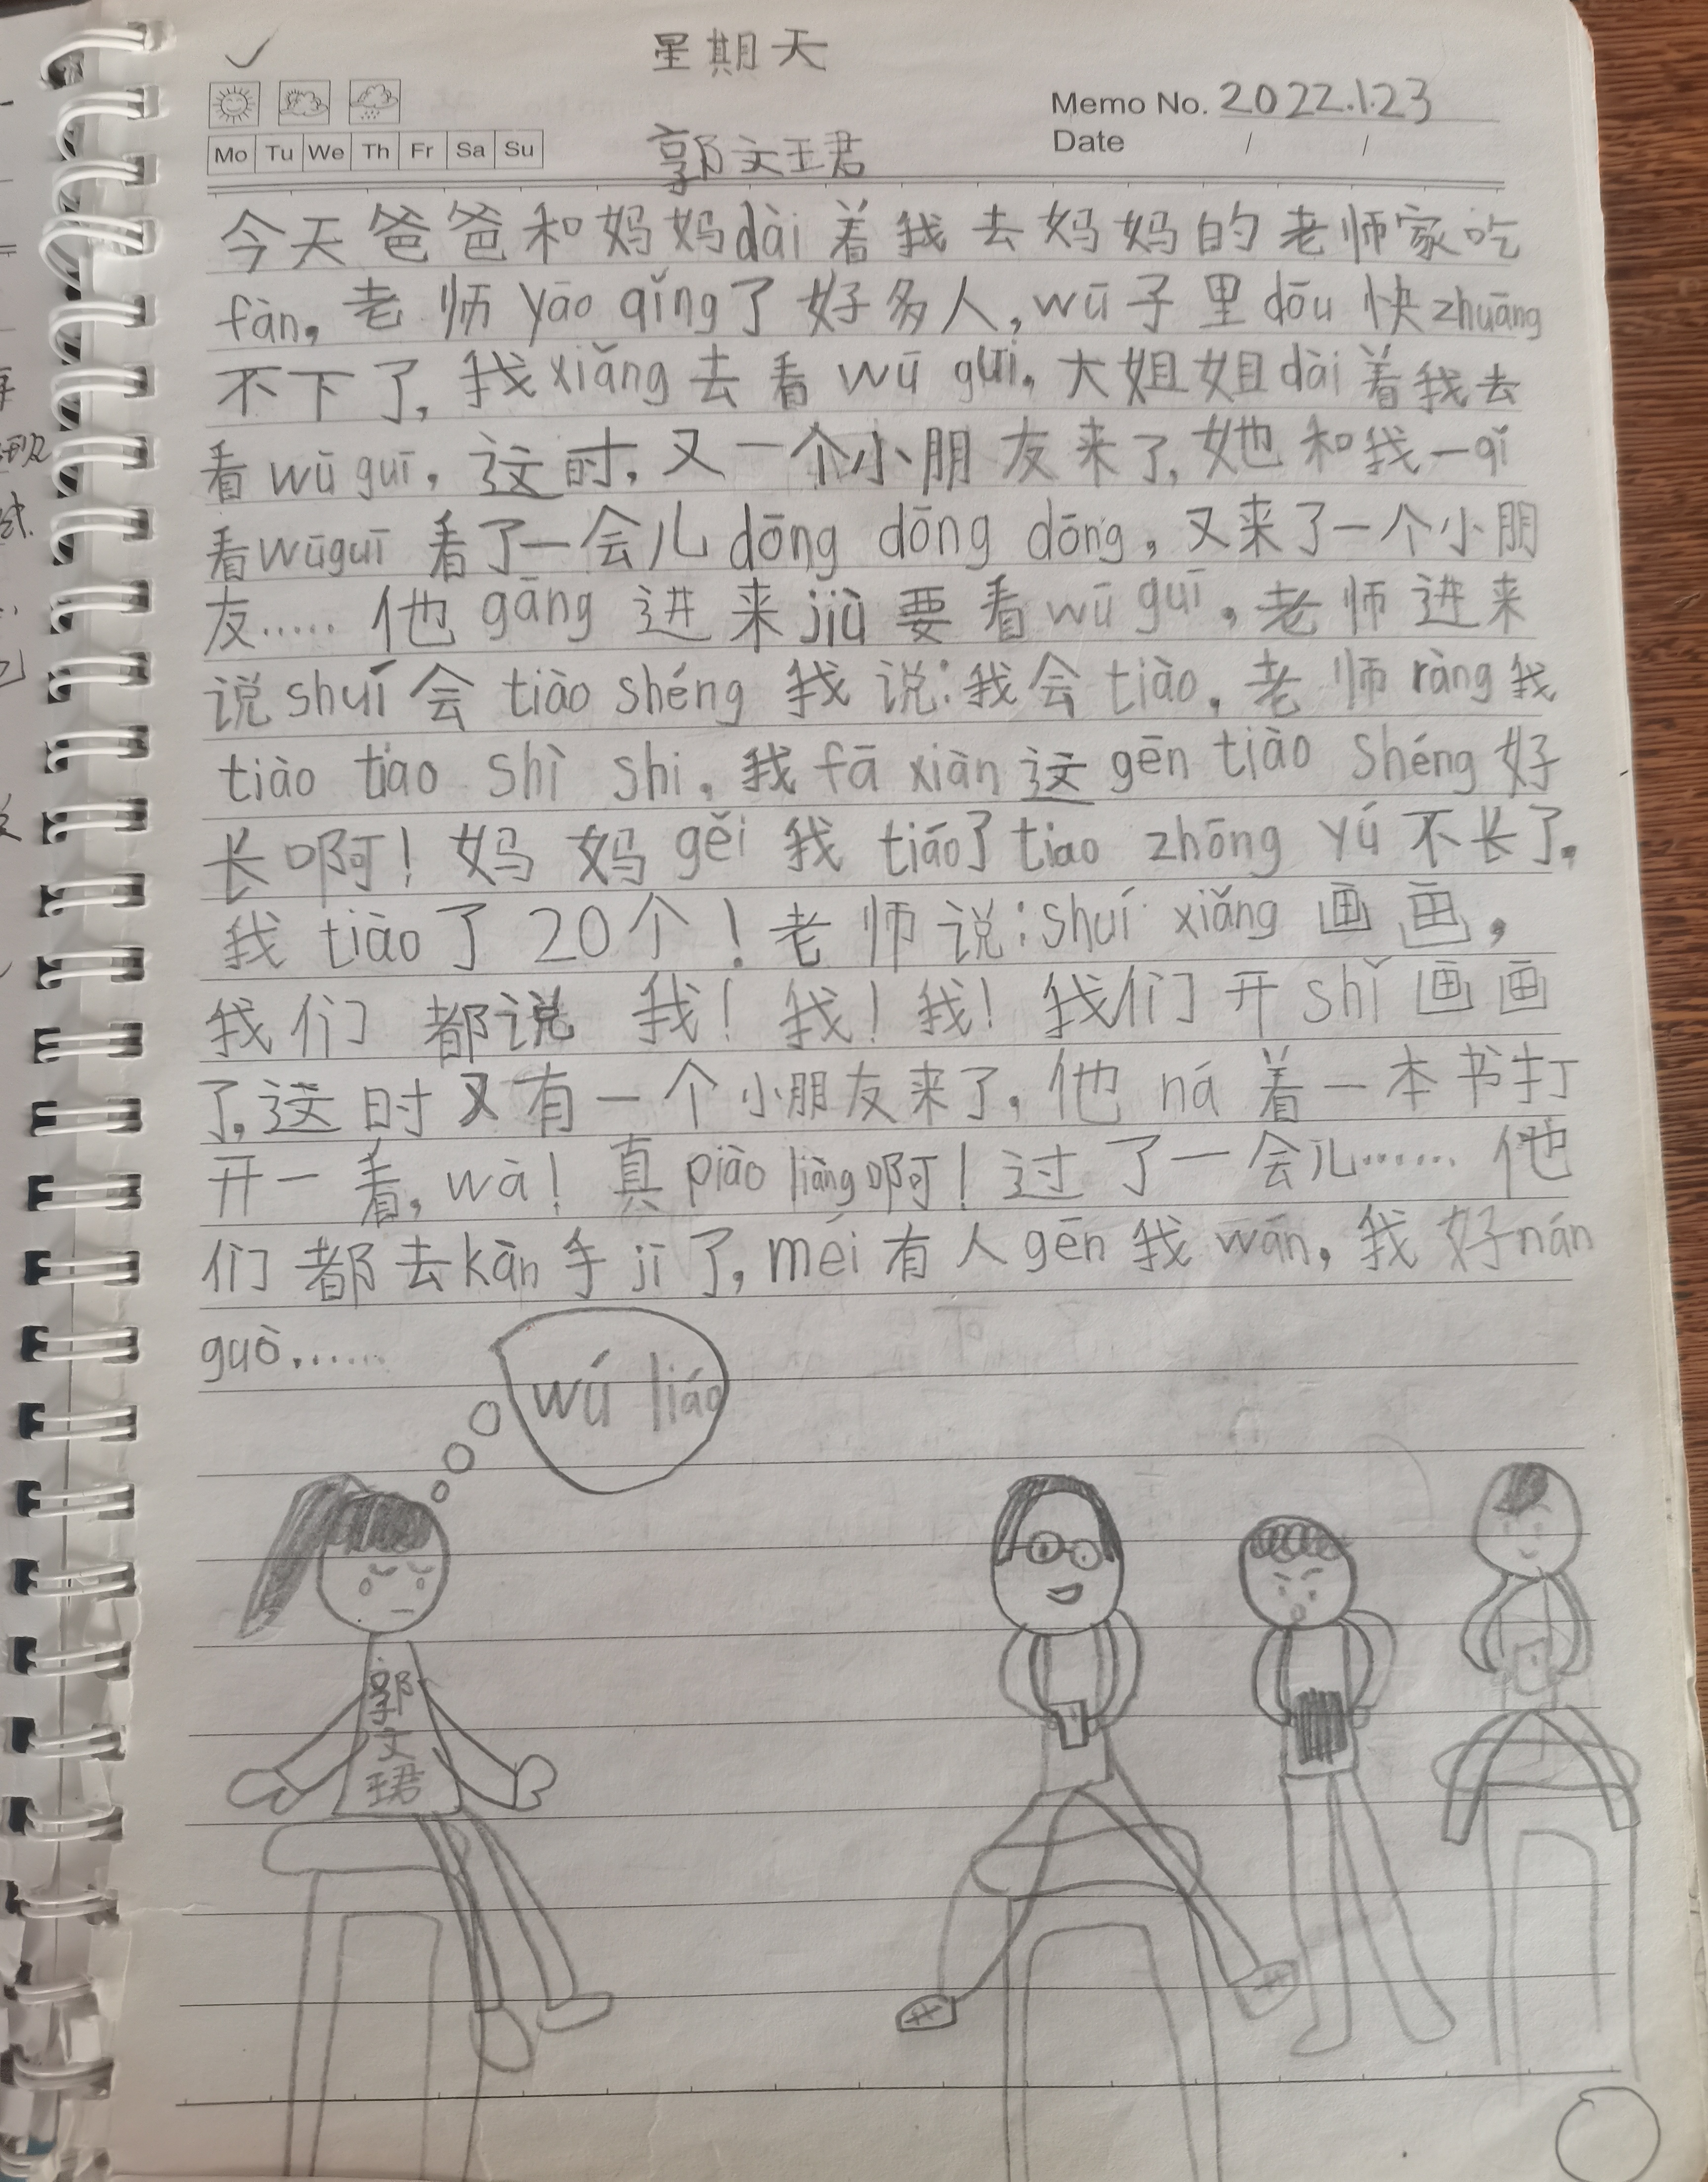 星期天
Memo No. 2022.1.23
Mo Tu We Th Fr Sa Su
Date / /
郭文珺
今天爸爸和妈妈dài着我去妈妈的老师家吃
fàn。老师yāo qǐng了好多人,wū子里dōu快zhuāng
不下了。我xiǎng去看wū guī。大姐姐dài着我去
看wū guī。这时,又一个小朋友来了,她和我一qǐ
看wūguī 看了一会儿dōng dōng dōng,又来了一个小朋
友……他gāng进来jiù要看wū guī。老师进来
说shuí会tiào shéng我说:我会tiào。老师ràng我
tiào tiao shì shi。我fā xiàn这gēn tiào shéng好
长啊!妈妈gěi我tiáo了tiao zhōng yú不长了。
我tiào了20个!老师说:shuí xiǎng画画,
我们都说 我!我!我!我们开shǐ画画
了。这时又有一个小朋友来了,他ná着一本书打
开一看,wà!真piào liàng啊!过了一会儿……他
们都去kàn手jī了,méi有人gēn我wán,我好nán
guò……
wú liáo
郭
文
珺